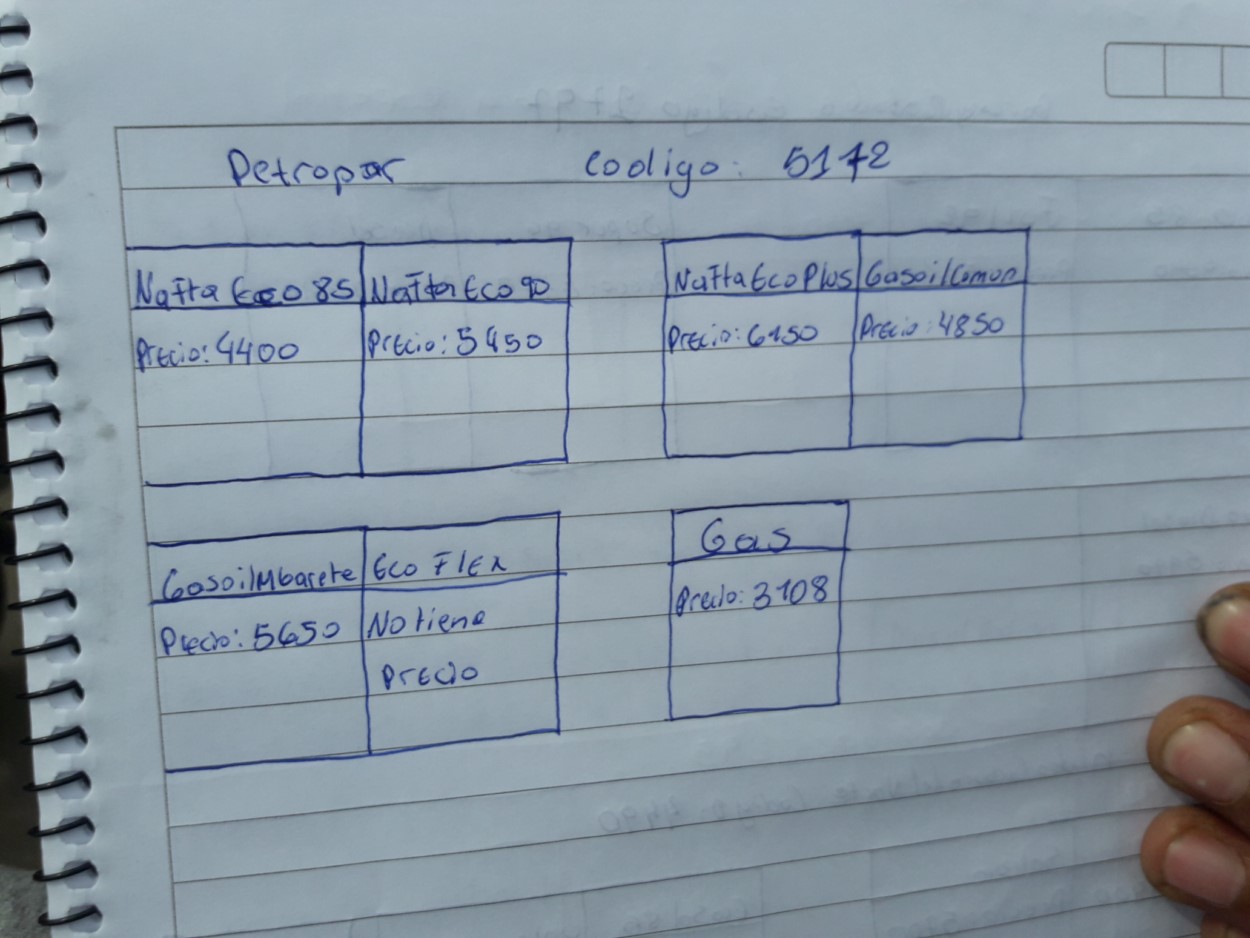 Petropar Codigo: 5172
Nafta Eco 85 Nafta Eco 90 Nafta Eco Plus Gasoil Comun
Precio: 4400 Precio: 5450 Precio: 6150 Precio: 4850
Gasoil Mbarete Eco Flex Gas
Precio: 5650 No tiene Precio: 3108
Precio